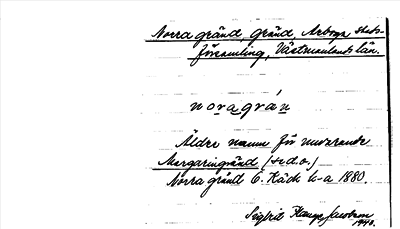 Norra gränd, gränd, Arboga stads-
församling, Västmanlands län.
noragrán
Äldre namn för nuvarande
Margaringränd (se d. o.)
Norra gränd E. Käck k-a 1880.
Sigfrid
1940.